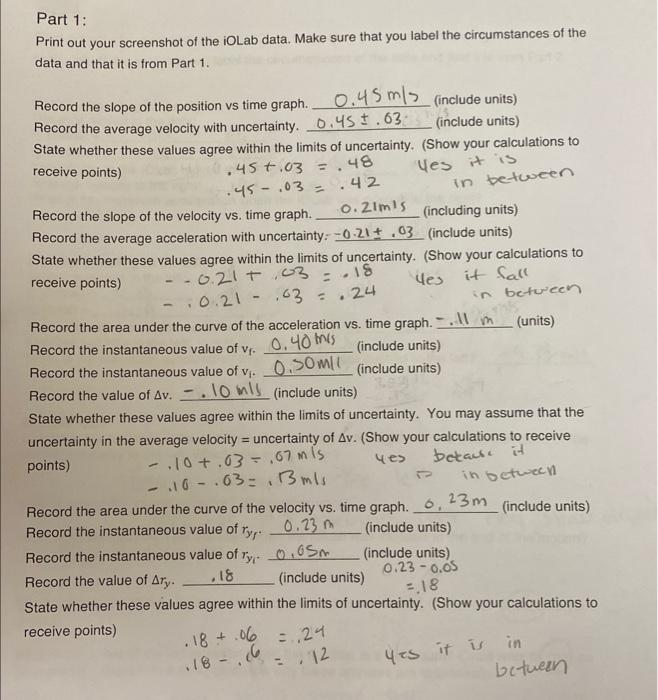 Part 1:
Print out your screenshot of the iOLab data. Make sure that you label the circumstances of the
data and that it is from Part 1.
Record the slope of the position vs time graph. 0.45 m/s (include units)
Record the average velocity with uncertainty. 0.45 ± .03 (include units)
State whether these values agree within the limits of uncertainty. (Show your calculations to
receive points) .45 + .03 = .48 yes it is
.45 - .03 = .42 in between
Record the slope of the velocity vs. time graph. 0.21m/s (including units)
Record the average acceleration with uncertainty: -0.21 ± .03 (include units)
State whether these values agree within the limits of uncertainty. (Show your calculations to
receive points) - -0.21 + .03 = .18 yes it fall
- .0.21 - .03 = .24 in between
Record the area under the curve of the acceleration vs. time graph. -.11 m (units)
Record the instantaneous value of vf. 0.40 m/s (include units)
Record the instantaneous value of vi. 0.50m/ (include units)
Record the value of Δv. -.10 m/s (include units)
State whether these values agree within the limits of uncertainty. You may assume that the
uncertainty in the average velocity = uncertainty of Δv. (Show your calculations to receive
points) -.10 + .03 = .07 m/s yes because it
-.10 - .03 = .13 m/s in between
Record the area under the curve of the velocity vs. time graph. 0.23m (include units)
Record the instantaneous value of ryf. 0.23 m (include units)
Record the instantaneous value of ryi. 0.05m (include units)
Record the value of Δry. .18 (include units) 0.23 - 0.05
= .18
State whether these values agree within the limits of uncertainty. (Show your calculations to
receive points) .18 + .06 = .24
.18 - .06 = .12 yes it is in
between